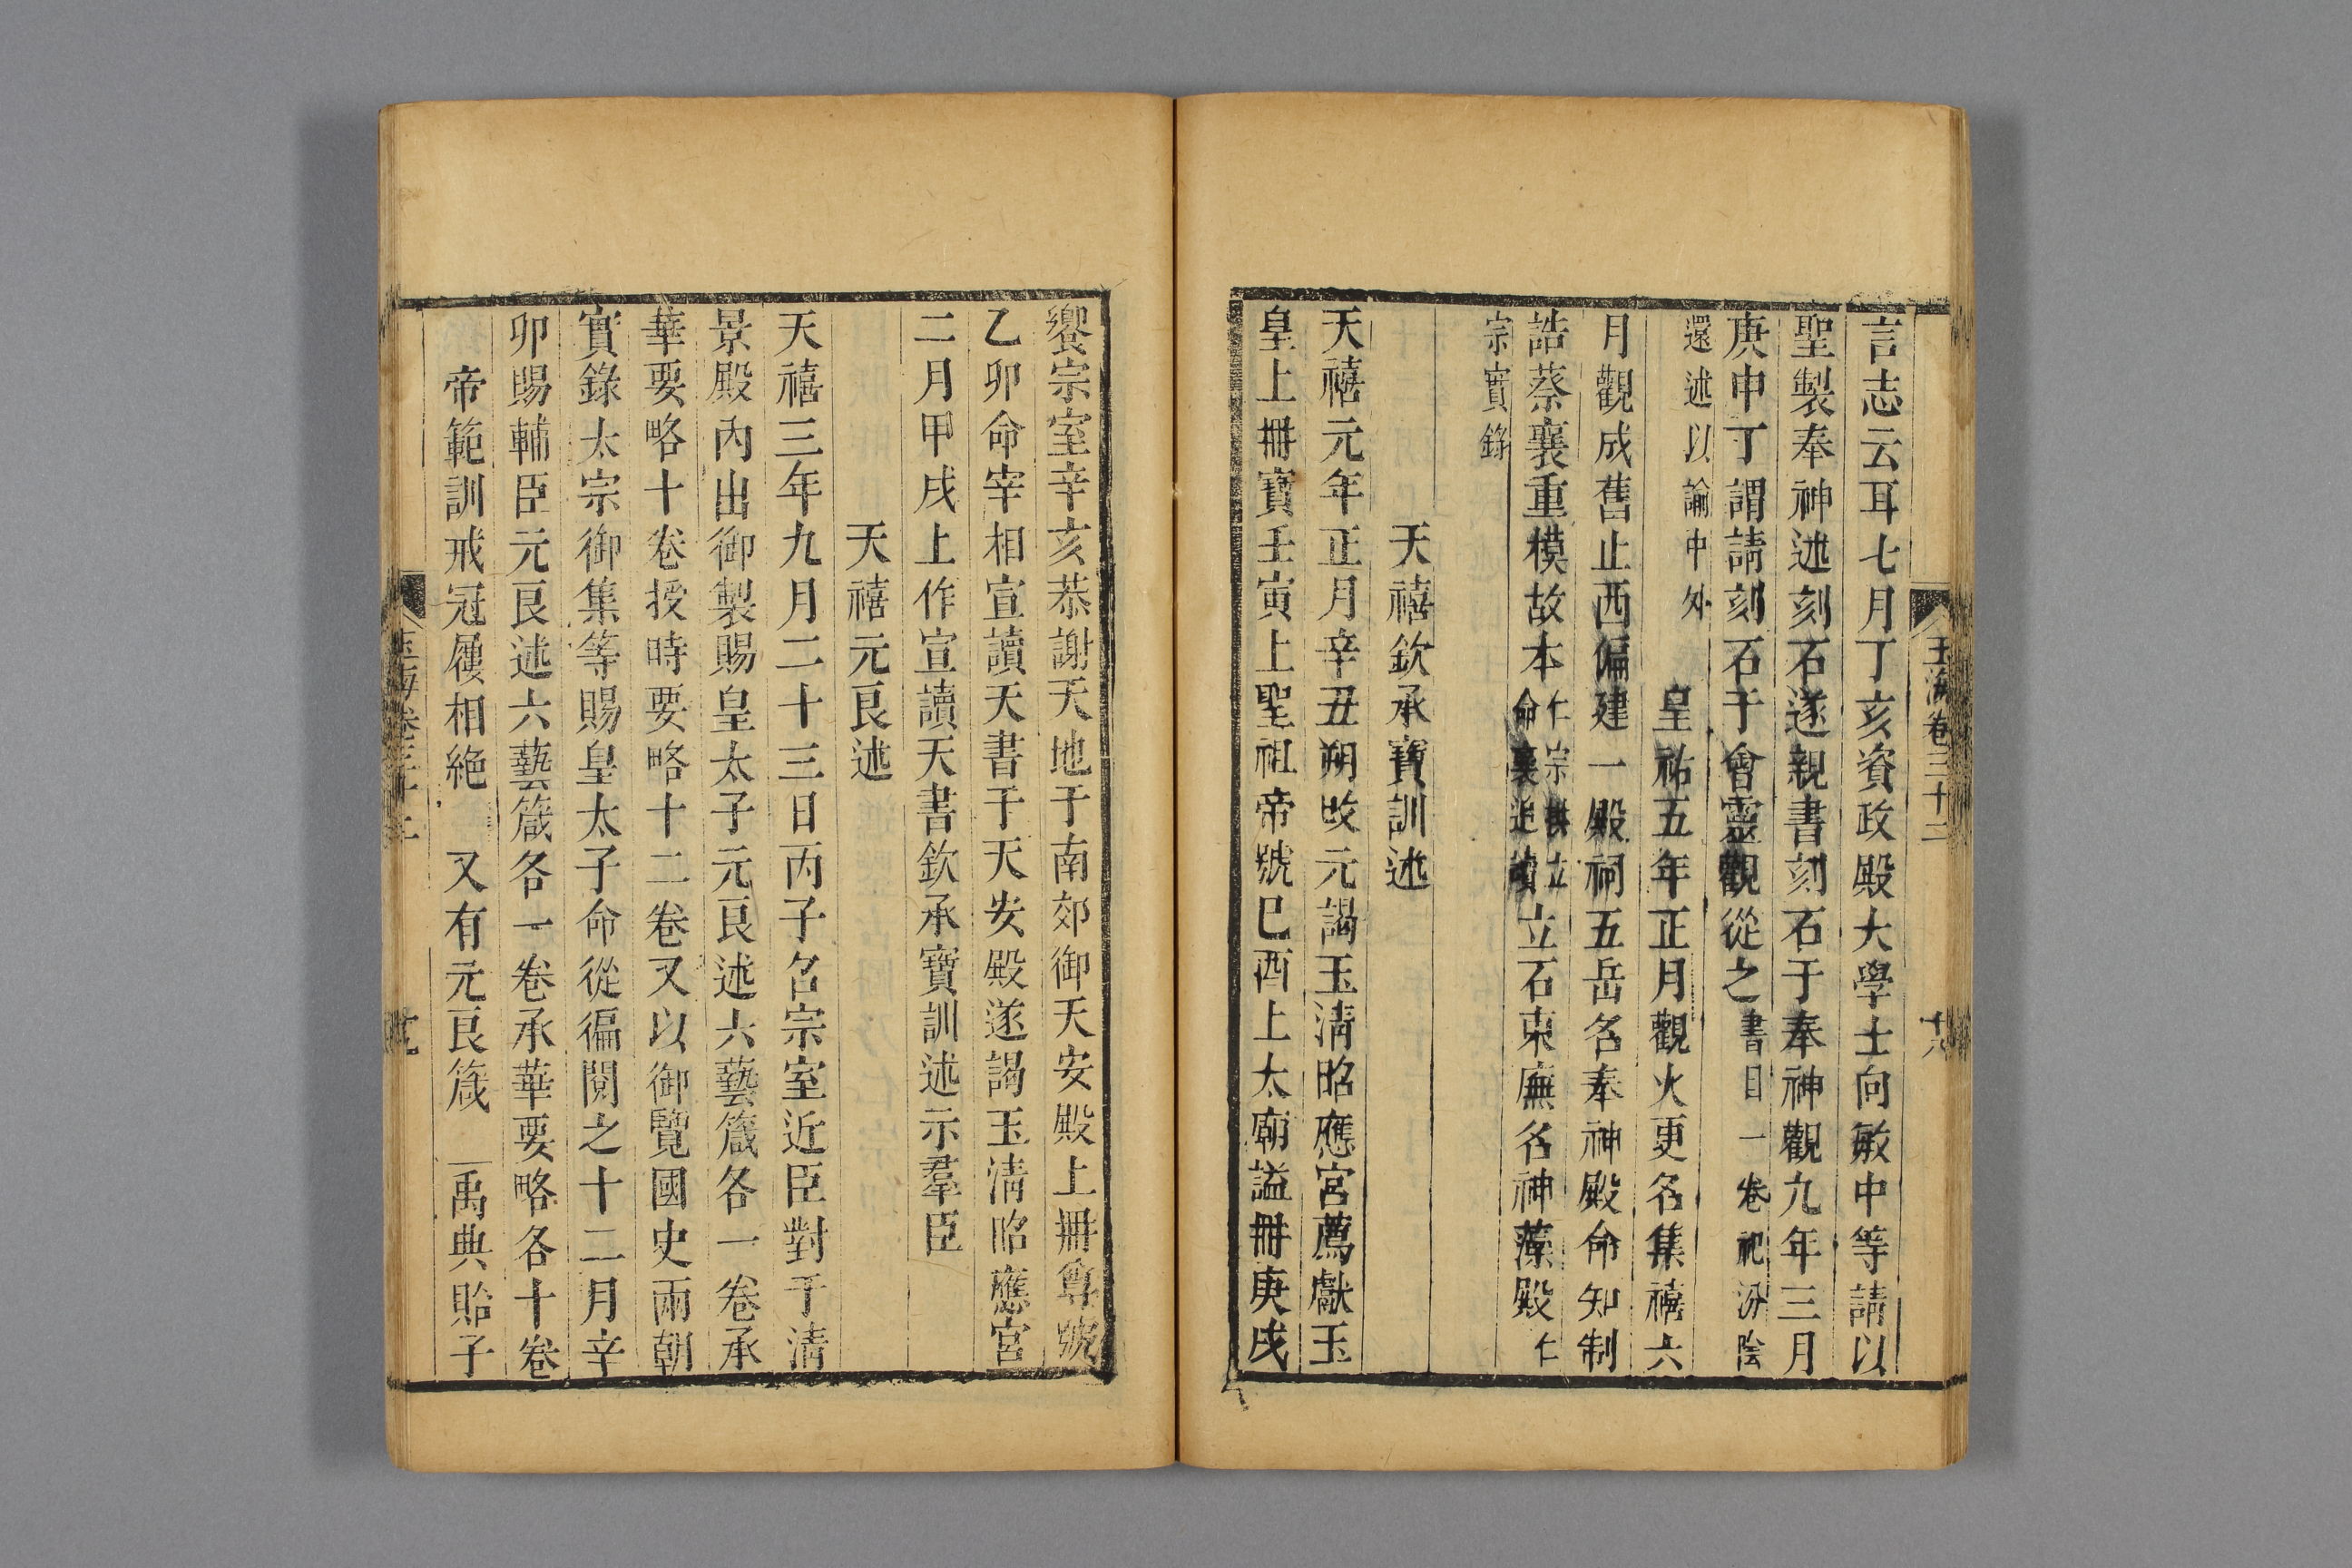 玉海卷三十二 十八
言志云耳七月丁亥資政殿大學士向敏中等請以
聖製奉神述刻石遂親書刻石于奉神觀九年三月
庚申丁謂請刻石于會靈觀從之書目一卷祀汾陰
還述以諭中外 皇祐五年正月觀火更名集禧六
月觀成舊止西偏建一殿祠五岳名奉神殿命知制
誥蔡襄重模故本仁宗 立命襄追 立石東廡名神藻殿仁
宗實錄
天禧欽承寶訓述
天禧元年正月辛丑朔改元謁玉清昭應宮薦獻玉
皇上冊寶壬寅上聖祖帝號巳酉上太廟謚冊庚戌
饗宗室辛亥恭謝天地于南郊御天安殿上冊尊號
乙卯命宰相宣讀天書于天安殿遂謁玉清昭應宮
二月甲戌上作宣讀天書欽承寶訓述示羣臣
天禧元良述
天禧三年九月二十三日丙子名宗室近臣對于清
景殿內出御製賜皇太子元良述六藝箴各一卷承
華要略十卷授時要略十二卷又以御覽國史兩朝
實錄太宗御集等賜皇太子命從徧閱之十二月辛
卯賜輔臣元良述六藝箴各一卷承華要略各十卷
帝範訓戒冠屨相絶 又有元良箴 禹典貽子